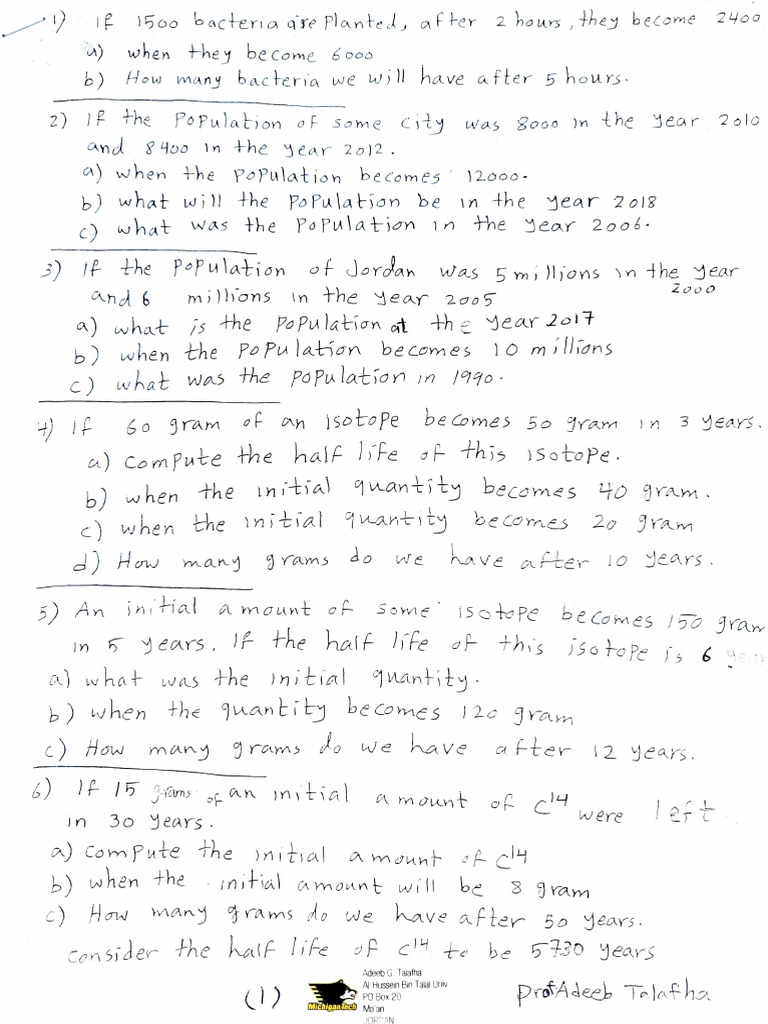 1) If 1500 bacteria are planted, after 2 hours, they become 2400
a) when they become 6000
b) How many bacteria we will have after 5 hours.
2) If the population of some city was 8000 in the year 2010
and 8400 in the year 2012.
a) when the population becomes 12000.
b) what will the population be in the year 2018
c) what was the population in the year 2006.
3) If the population of Jordan was 5 millions in the year
2000
and 6 millions in the year 2005
a) what is the population at the year 2017
b) when the population becomes 10 millions
c) what was the population in 1990.
4) If 60 gram of an isotope becomes 50 gram in 3 years.
a) compute the half life of this isotope.
b) when the initial quantity becomes 40 gram.
c) when the initial quantity becomes 20 gram
d) How many grams do we have after 10 years.
5) An initial amount of some isotope becomes 150 gram
in 5 years. If the half life of this isotope is 6 years
a) what was the initial quantity.
b) when the quantity becomes 120 gram
c) How many grams do we have after 12 years.
6) If 15 grams of an initial amount of C14 were left
in 30 years.
a) compute the initial amount of C14
b) when the initial amount will be 8 gram
c) How many grams do we have after 50 years.
consider the half life of C14 to be 5730 years
(1)
MichiganTech
Adeeb G. Talafha
Al Hussein Bin Talal Univ
PO Box 20
Ma'an
JORDAN
Prof Adeeb Talafha